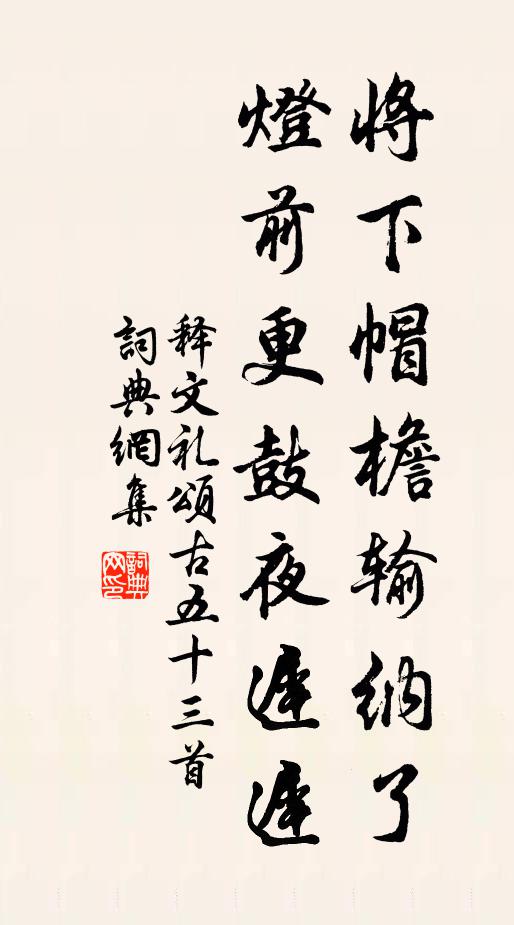 將下帽檐输納了
燈前更鼓夜遲遲
释文礼頌古五十三首
詞典網集
詞典網印